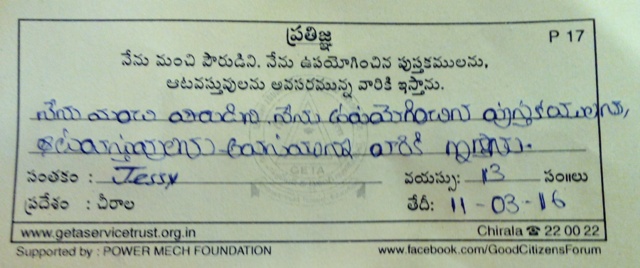 ప్రతిజ్ఞ
P 17
నేను మంచి పౌరుడిని. నేను ఉపయోగించిన పుస్తకములను,
ఆటవస్తువులను అవసరమున్న వారికి ఇస్తాను.
నేను మంచి పౌరుడిని. నేను ఉపయోగించిన పుస్తకములను,
ఆటవస్తువులను అవసరమున్న వారికి ఇస్తాను.
సంతకం : Jessy వయస్సు: 13 సం॥లు
GETA
ప్రదేశం : చీరాల తేదీ: 11-03-16
www.getaservicetrust.org.in Chirala ☎ 22 00 22
Supported by : POWER MECH FOUNDATION www.facebook.com/GoodCitizensForum